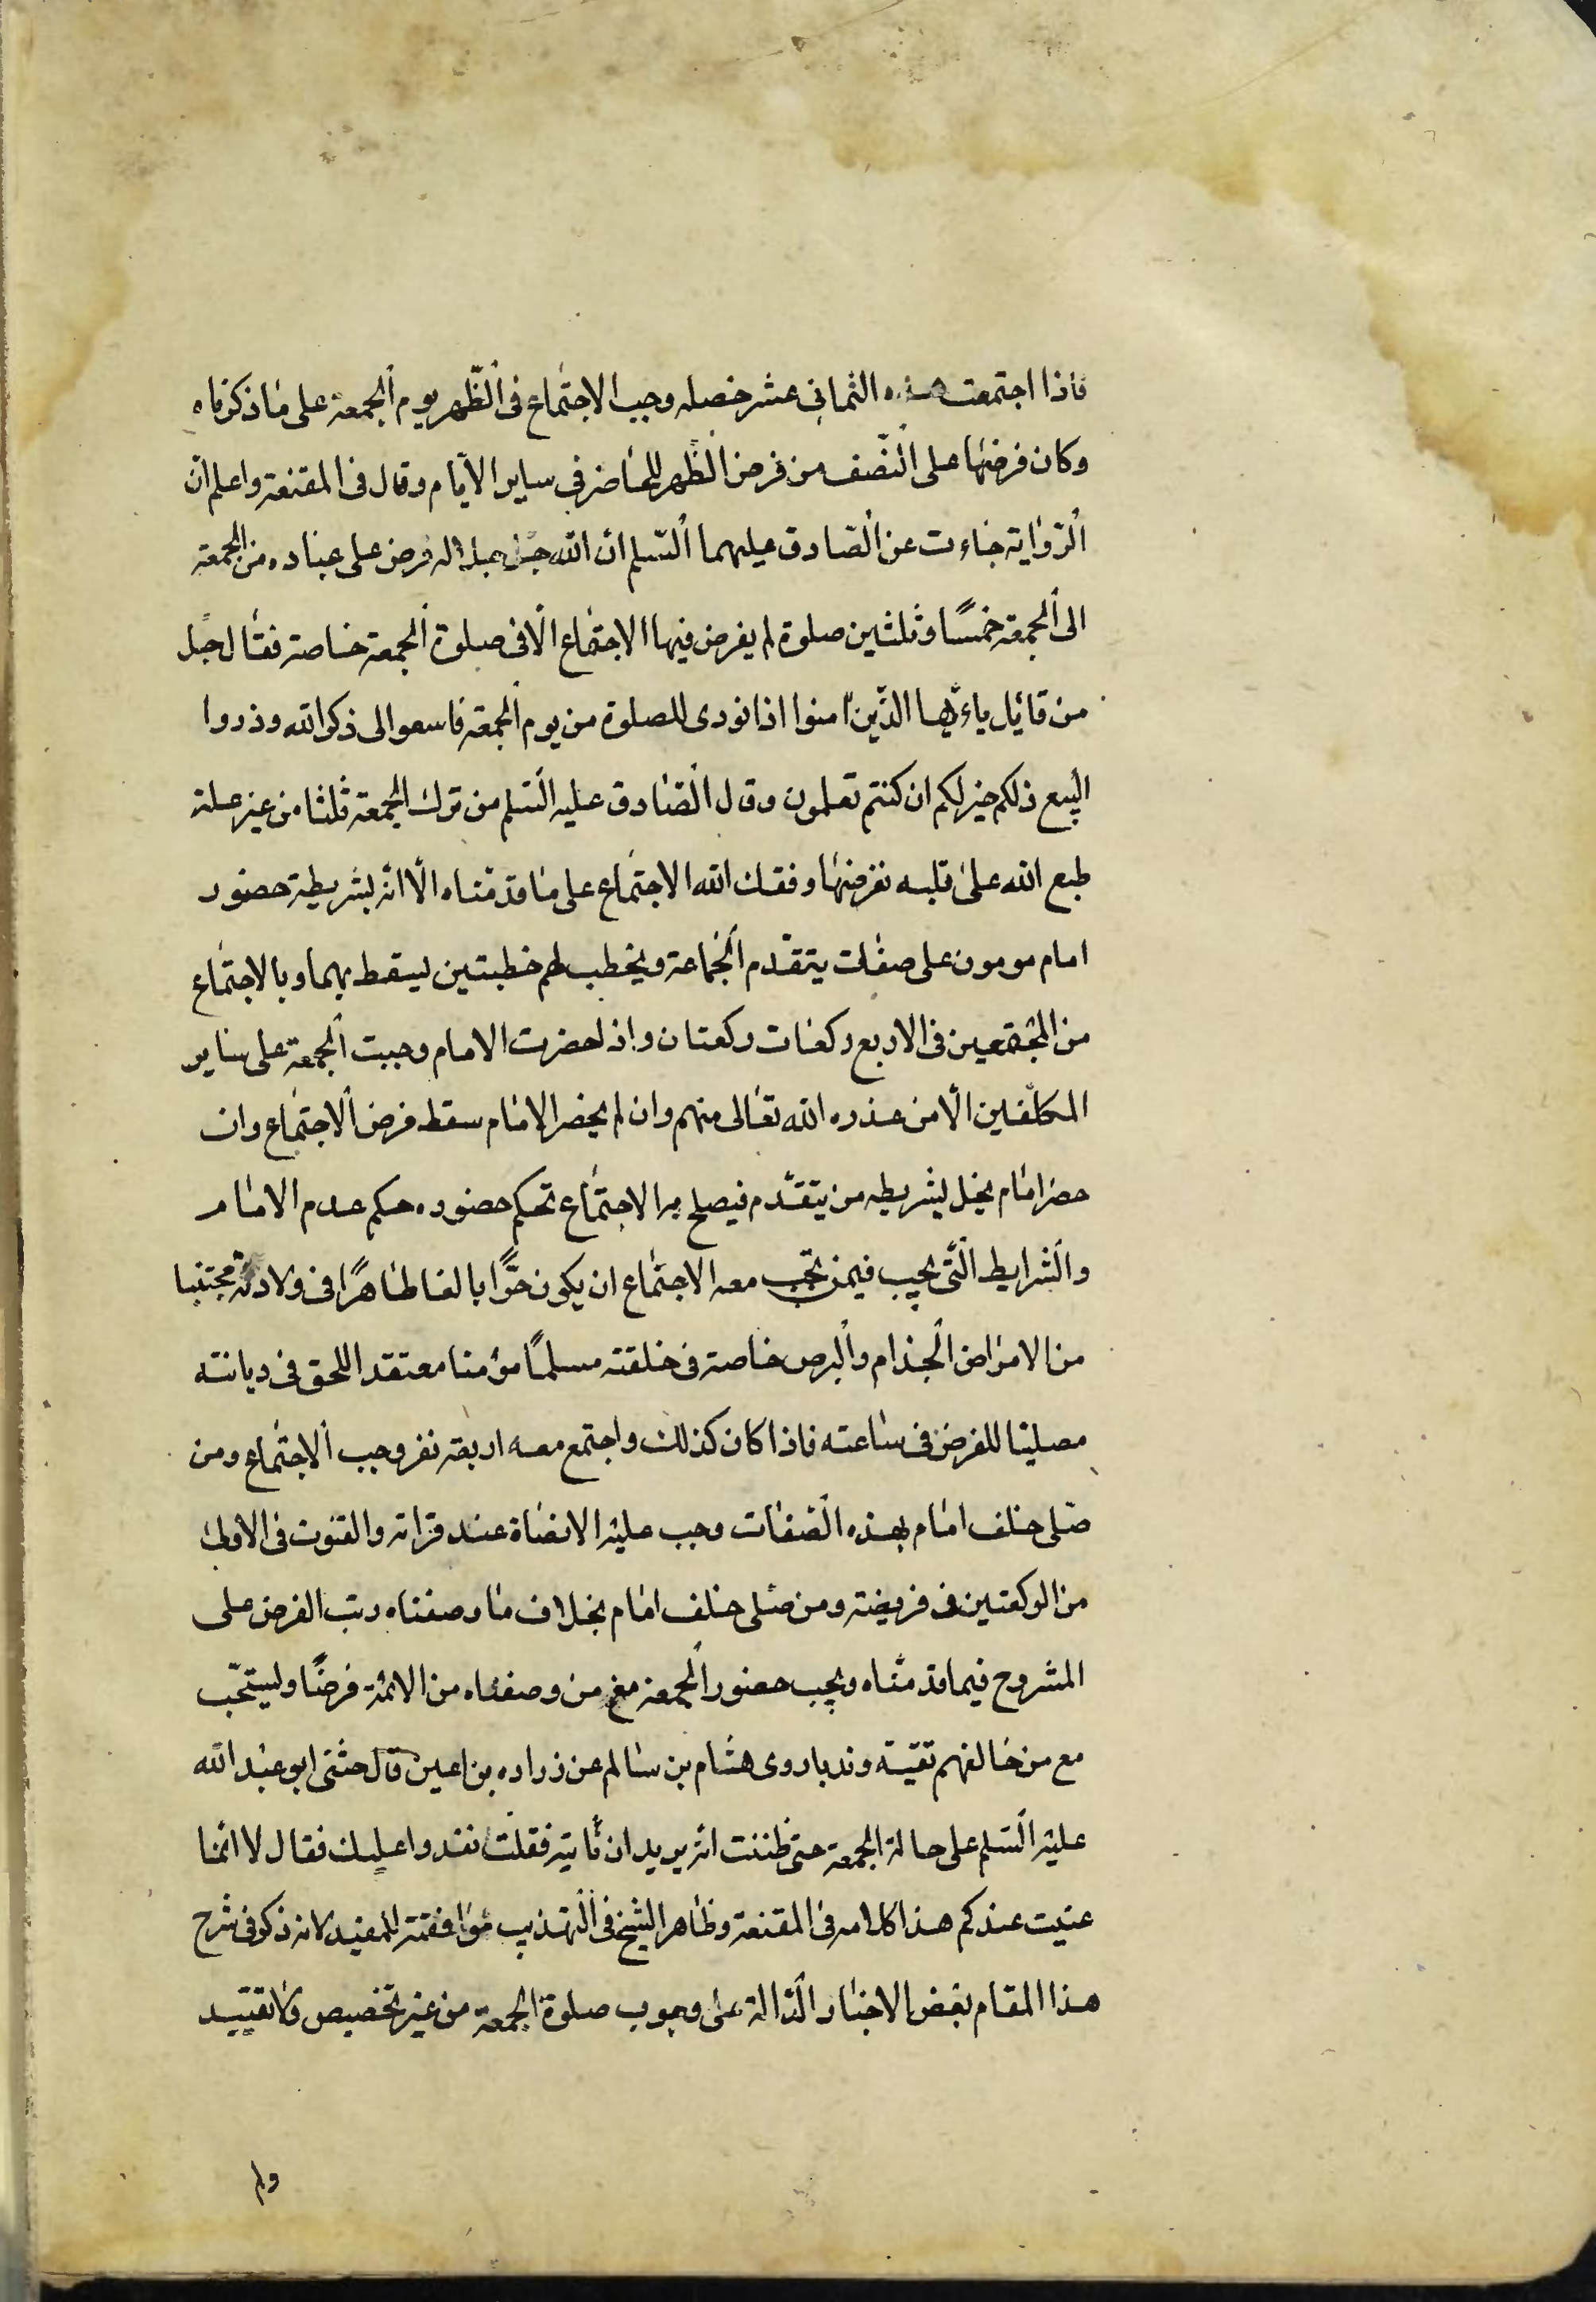 فاذا اجتمعت هذه الثمانى عشر خصله وجب الاجتماع فى الظّهر يوم الجمعة على ما ذكرناه
وكان فرضها على النّصف من فرض الظّهر للحاضر في ساير الايّام وقال فى المقنعة واعلم انّ
الرّواية جاءت عن الصّادق عليهما السّلم ان الله جلّ جلاله فرض على عباده من الجمعة
الى الجمعة خمسًا وثلثين صلوة لم يفرض فيها الاجتماع الّا فى صلوة الجمعة خاصة فقال جل
من قائل ياءيّها الذّين امنوا اذا نودى للصلوة من يوم الجمعة فاسعوا الى ذكر الله وذروا
البيع ذلكم خير لكم ان كنتم تعلمون وقال الصّادق عليه السّلم من ترك الجمعة ثلثا من غير علة
طبع الله على قلبه نفرضها وفقك الله الاجتماع على ما قدّمناه الّا انّه بشريطة حضور
امام مومون على صفات يتقدّم الجماعة ويخطب لهم خطبتين ليسقط بهما وبالاجتماع
من المجتمعين فى الاربع ركعات ركعتان واذا حضرت الامام وجبت الجمعة على ساير
المكلّفين الّا من عذره الله تعالى منهم وان لم يحضر الامام سقط فرض الاجتماع وان
حضر امام يخل بشريطه من يتقدّم فيصلح به الاجتماع تحكم حضوره حكم عدم الامام
والشرايط الّتى يجب فيمن تجب معه الاجتماع ان يكون حرًّا بالغا طاهرًا فى ولادته مجتنبا
من الامراض الجذام والبرص خاصة فى خلقته مسلمًا مؤمنا معتقد اللحق فى ديانته
مصليا للفرض فى ساعته فاذا كان كذلك واجتمع معه اربعة نفر وجب الاجتماع ومن
صلى خلف امام بهذه الصّفات وجب عليه الانصاة عند قراته والقنوت فى الاولى
من الركعتين فى فريضة ومن صلى خلف امام بخلاف ما وصفناه رتب الفرض على
المشروح فيما قدمناه ويجب حضور الجمعة مع من وصفناه من الائمة فرضًا وليستحّب
مع من خالفهم تقيّة وندبا روى هشام بن سالم عن زراره بن اعين قال حثنى ابو عبد الله
عليه السّلم على حالة الجمعة حتى ظننت انه يريد ان نأتيه فقلت نغدوا عليك فقال لا انما
عنيت عندكم هذا كلامه فى المقنعة وظاهر الشيخ فى التّهذيب موافقته للمفيد لانه ذكر فى شرح
هذا المقام بعض الاخبار الدّالة على وجوب صلوة الجمعة من غير تخصيص ولا تقييد
ولم